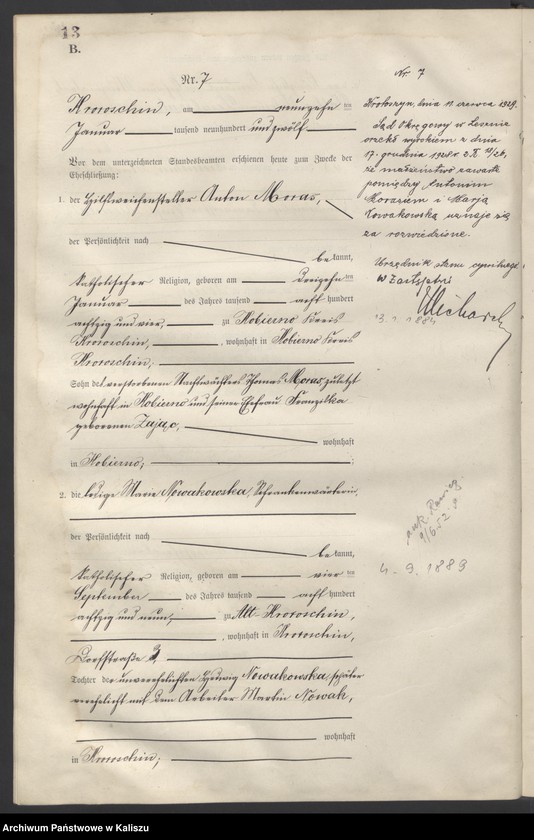 13
B.
Nr. 7
Krotoschin, am neunzehnten
Januar tausend neunhundert und zwölf
Vor dem unterzeichneten Standesbeamten erschienen heute zum Zwecke der
Eheschließung:
1. der Hilfsweichensteller Anton Moras,
der Persönlichkeit nach
bekannt,
katholischer Religion, geboren am dreizehnten
Januar des Jahres tausend acht hundert
achtzig und vier, zu Kobierno Kreis
Krotoschin, , wohnhaft in Kobierno Kreis
Krotoschin,
Sohn des verstorbenen Nachtwächters Thomas Moras, zuletzt
wohnhaft in Kobierno und seiner Ehefrau Franziska
geborenen Zając,
wohnhaft
in Kobierno;
2. die ledige Marie Nowakowska, Schrankenwärterin,
der Persönlichkeit nach
bekannt,
katholischer Religion, geboren am vierten
September des Jahres tausend acht hundert
achtzig und neun, zu Alt-Krotoschin,
, wohnhaft in Krotoschin,
Dorfstraße
Tochter der unverehelichten Hedwig Nowakowska, später
verehelicht mit dem Arbeiter Martin Nowak,
wohnhaft
in Krotoschin;
Nr. 7
Krotoszyn, dnia 11 czerwca 1929.
Sąd Okręgowy w
orzekł wyrokiem z dnia
17. grudnia 1928 r.
że małżeństwo zawarte
pomiędzy Antonim
Morasem i Marją
Nowakowską uznaje się
za rozwiedzione.
Urzędnik stanu cywilnego
w zastępstwie
13. 1. 1884
4. 9. 1889
Archiwum Państwowe w Kaliszu